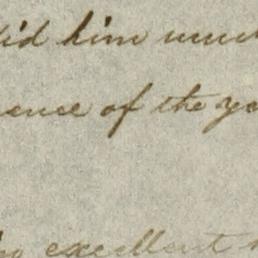 did him much
ence of the yo
excellent